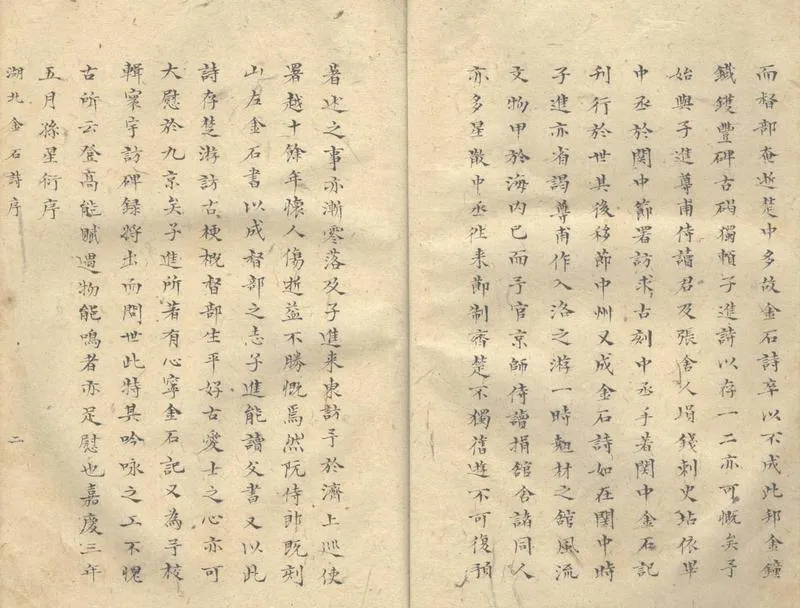 而督部奄逝楚中多故金石詩卒以不成此邦金鐘
鐵鑊豐碑古碣獨賴子進詩以存一二亦可慨矣予
始與子進尊甫侍讀君及張舍人塤錢刺史坫依畢
中丞於関中節署訪求古刻中丞手若関中金石記
刊行於世其後移節中州又成金石詩如在関中時
子進亦省謁尊甫作入洛之游一時魁材之舘風流
文物甲於海内已而予官京師侍讀捐舘舍諸同人
亦多星散中丞徃来節制齊楚不獨舊遊不可復預
著述之事亦漸零落及子進来東訪予於濟上廵使
署越十餘年懷人傷逝益不勝慨焉然阮侍郎既刻
山左金石書以成督部之志子進能讀父書又以此
詩存楚游訪古梗概督部生平好古愛士之心亦可
大慰於九京矣子進所著有心寧金石記又為予校
輯寰宇訪碑録將出而問世此特其吟咏之工不愧
古所云登高能賦遇物能鳴者亦足慰也嘉慶三年
五月孫星衍序
湖北金石詩序 二